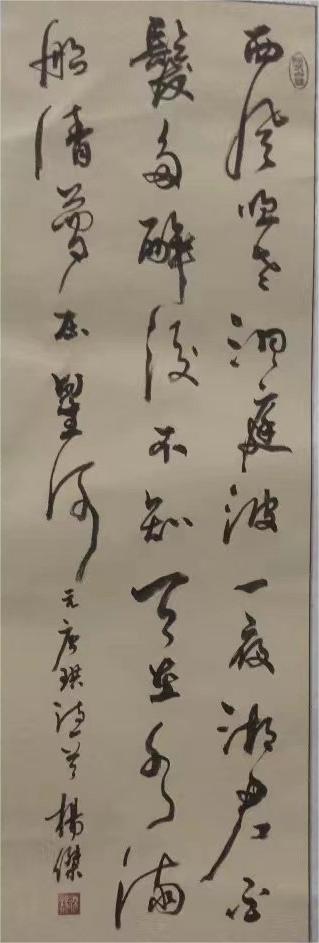 西风吹老洞庭波一夜湘君白
髮多醉后不知天在水滿
船清夢压星河
元唐珙詩首 楊傑